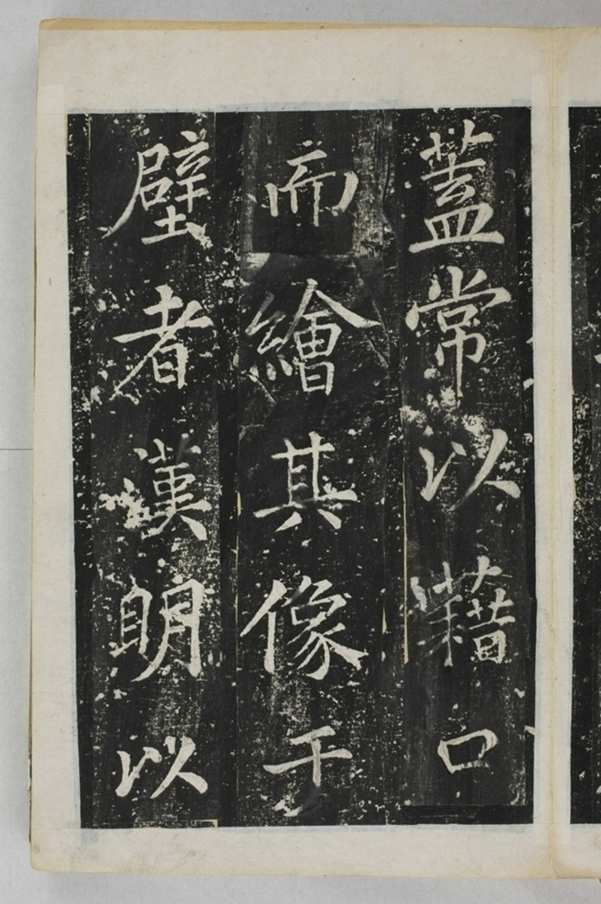 蓋常以藉口
而繪其像于
壁者漢明以